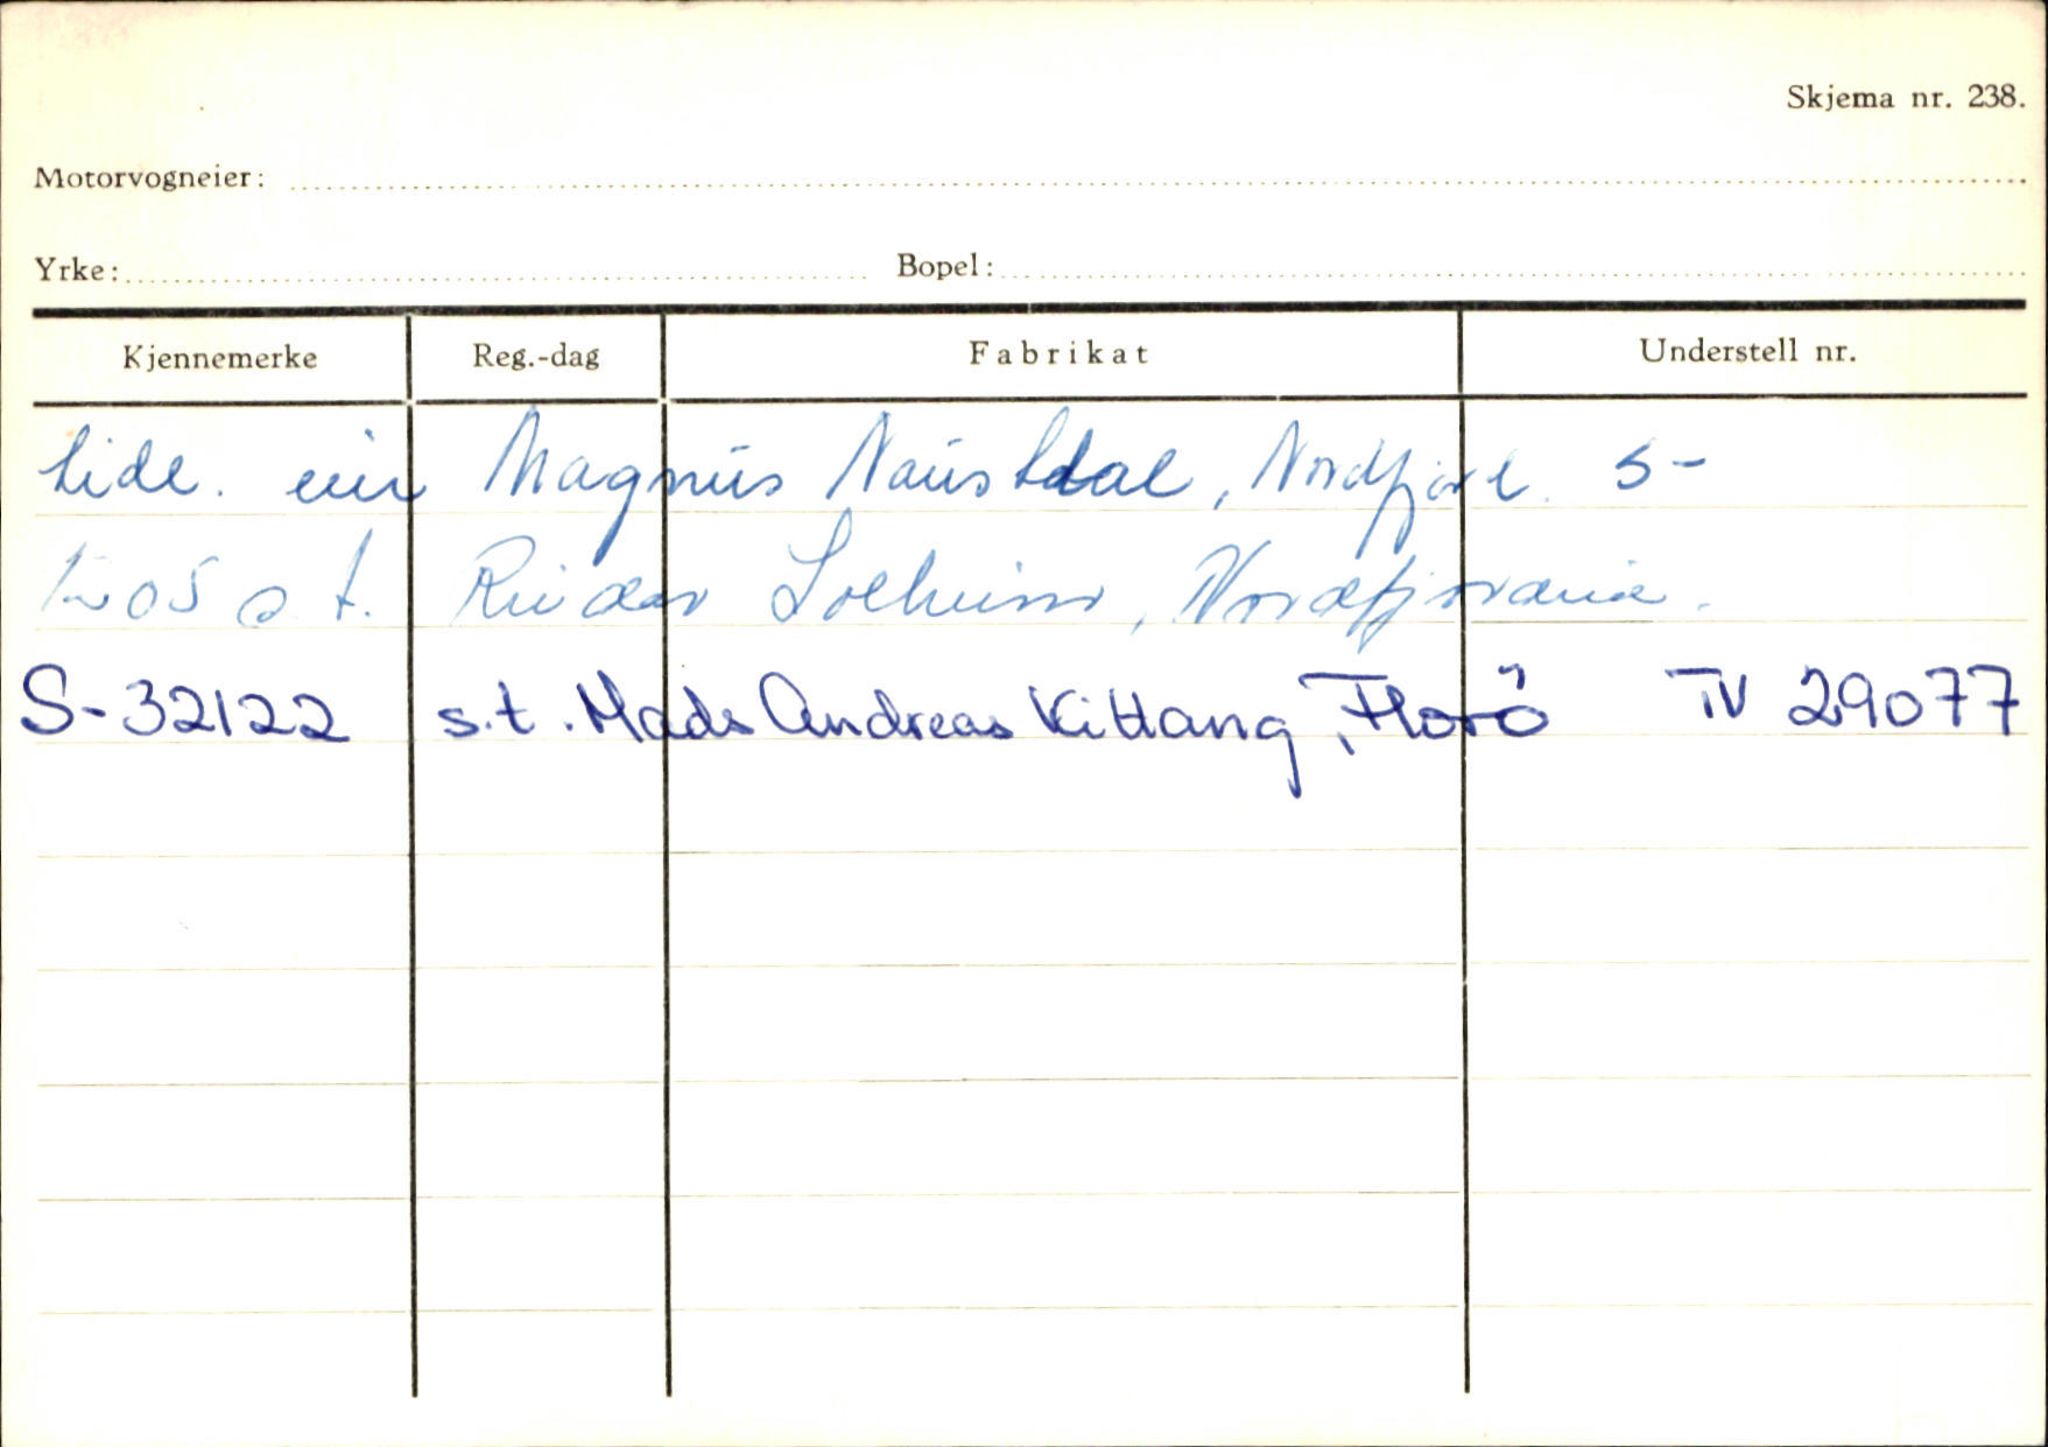 Skjema nr. 238.
Motorvogneier:
Yrke: Bopel:
Kjennemerke Reg.-dag Fabrikat Understell nr.
tidl. eier Magnus Naustdal, Nordfjord. S-
s.t. Reidar Solheim, Nordfjordeid.
S-32122 s.t. Mads Andreas Kittang, Florö TV 29077